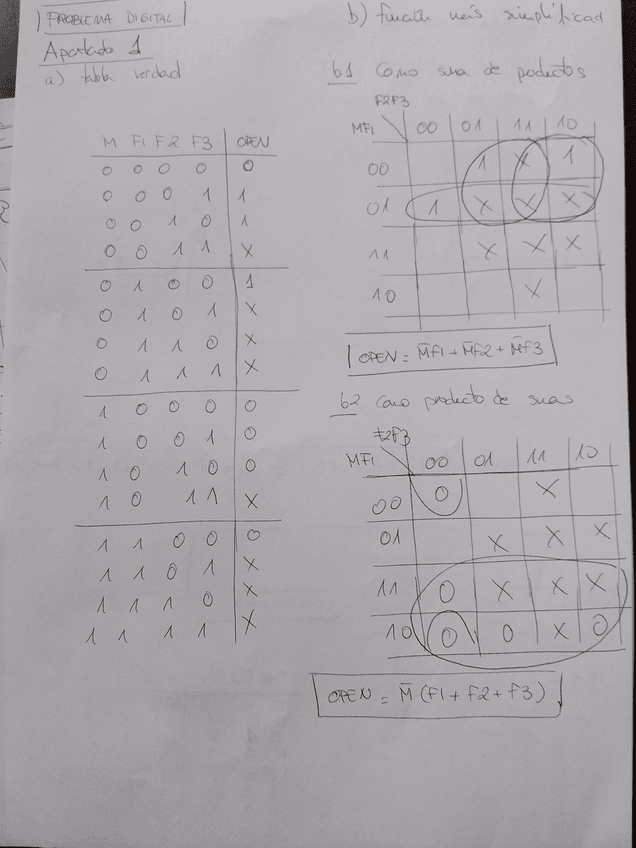 PROBLEMA DIGITAL
Apartado 1
a) tabla verdad
M F1 F2 F3 OPEN
0 0 0 0 0
0 0 0 1 1
0 0 1 0 1
0 0 1 1 X
0 1 0 0 1
0 1 0 1 X
0 1 1 0 X
0 1 1 1 X
1 0 0 0 0
1 0 0 1 0
1 0 1 0 0
1 0 1 1 X
1 1 0 0 0
1 1 0 1 X
1 1 1 0 X
1 1 1 1 X
b) función más simplificad
b1 Como suma de productos
F2F3
MF1 00 01 11 10
00 1 X 1
01 1 X X X
11 X X X
10 X
OPEN = M̄F1 + M̄F2 + M̄F3
b2 Como producto de sumas
F2F3
MF1 00 01 11 10
00 0 X
01 X X X
11 0 X X X
10 0 0 X 0
OPEN = M̄ (F1 + F2 + F3)